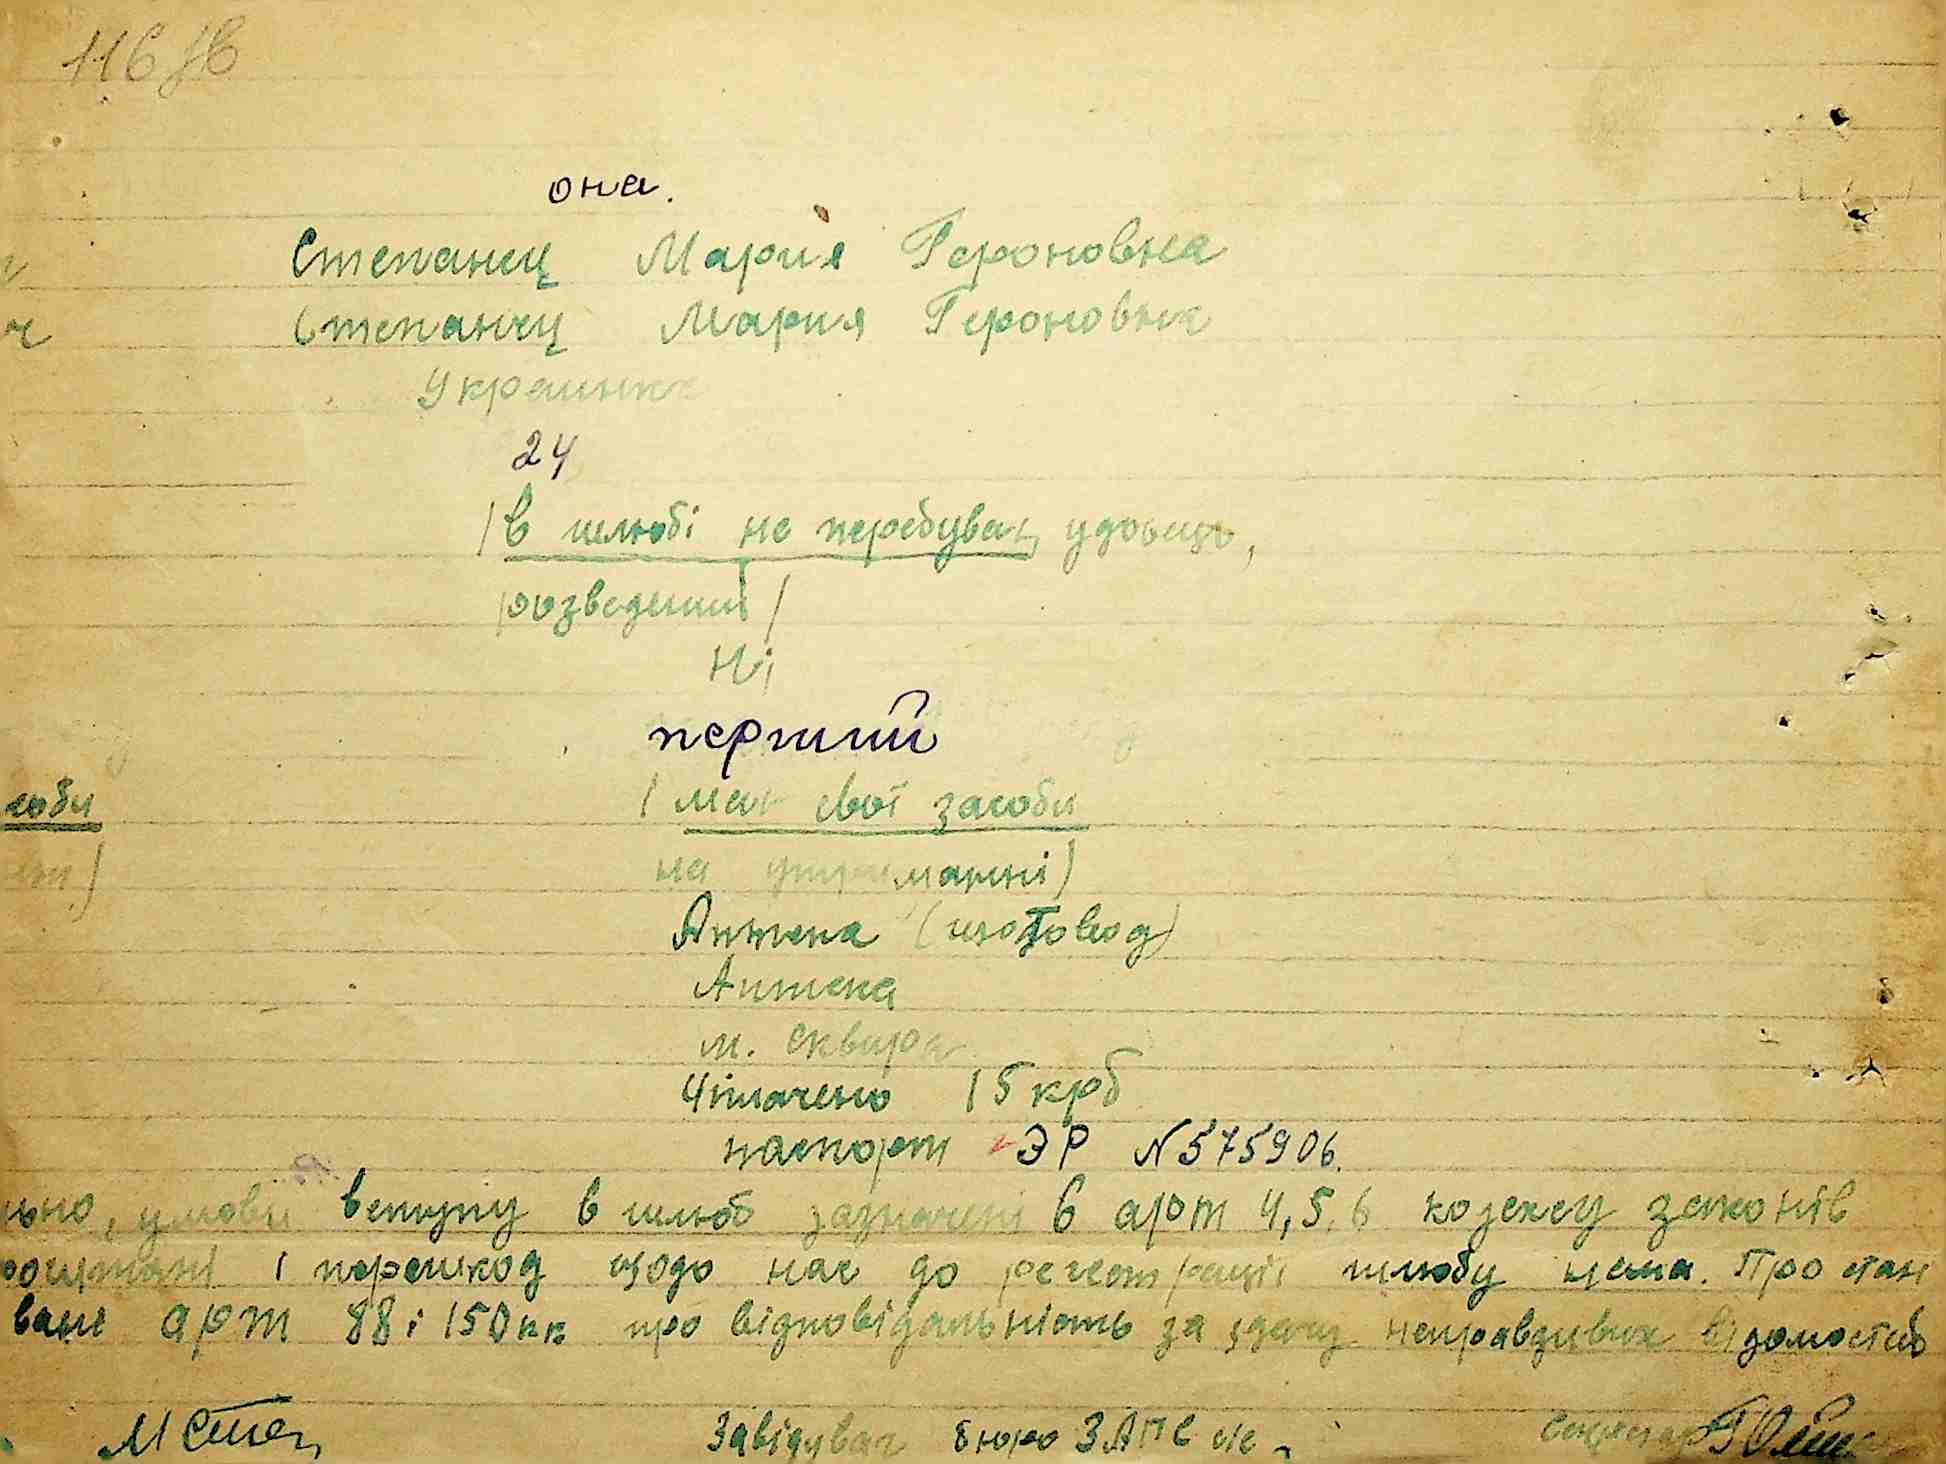 116
она.
Степанец Мария Героновна
Степанец Мария Героновна
Украинка
24
/в шлюбі не перебуває, удовець,
розведений/
Ні
перший
соби
/має свої засоби
на утриманні)
Аптека
Аптека
м. Сквира
паспорт ЭР N 575906.
льно, умови вступу в шлюб зазначені в арт 4, 5, 6 кодексу законів
і перешкод щодо нас до регетрації шлюбу нема. Про стан
вані арт 88 і 150 кк про відповідальність за здачу неправдивих відомостей
М Степ
Завідувач бюро ЗАГС Секретар
15 крб